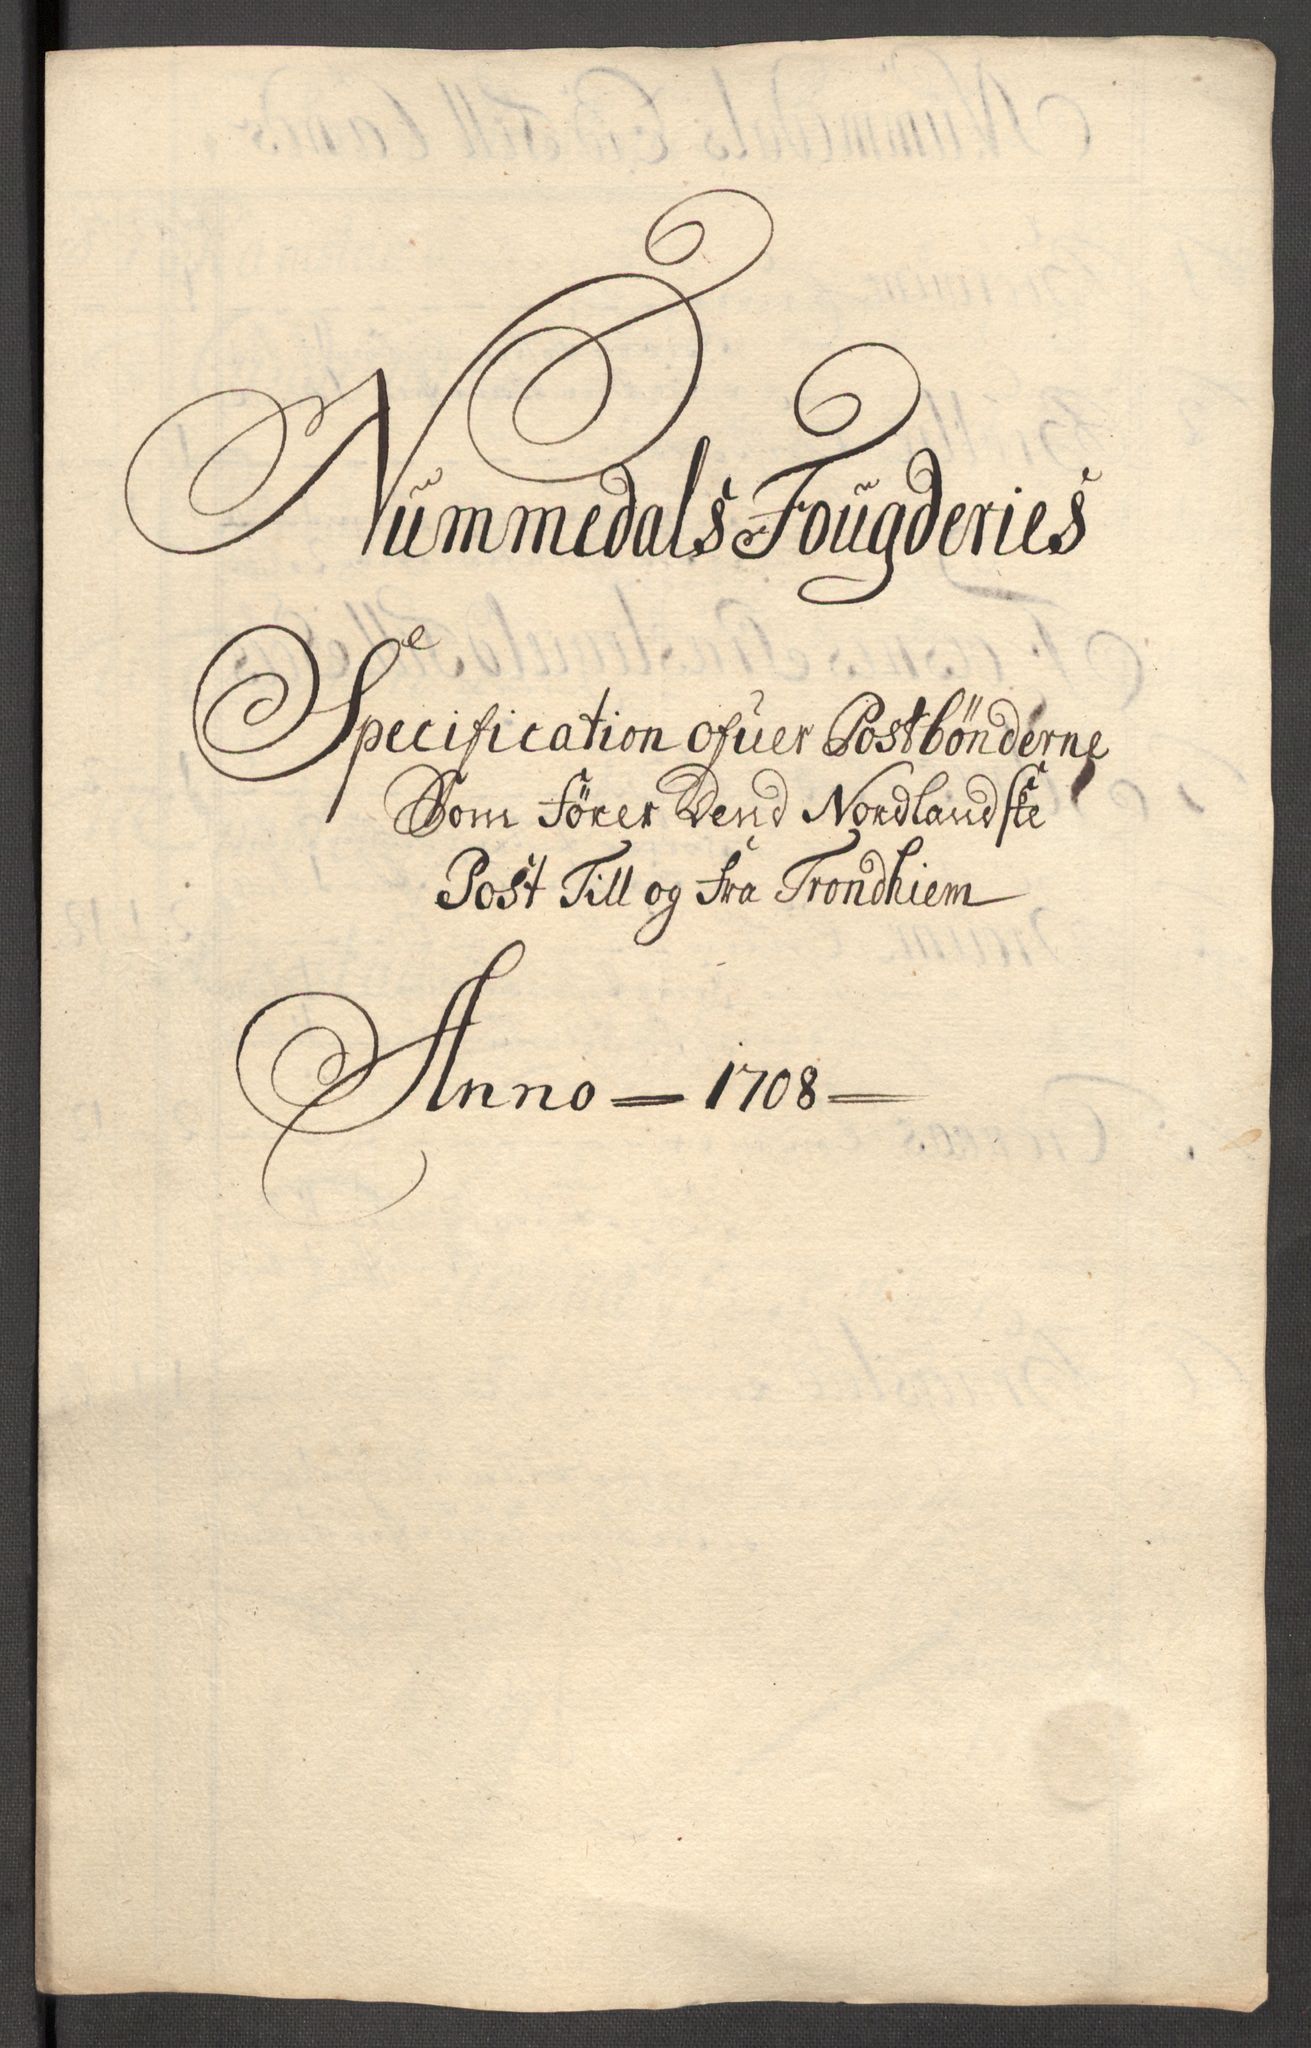 Nummedals Fougderies
Specification ofuer Postbönderne
Som förer Dend Nordlandske
Post Till og fra Trondhiem
Anno — 1708 —